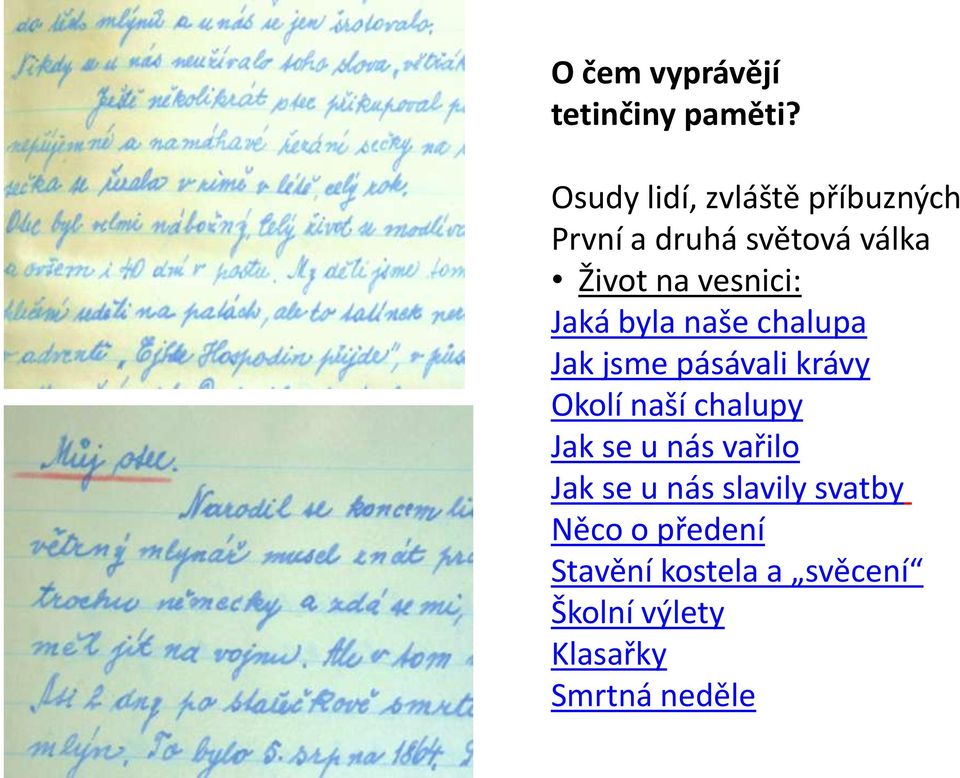 do těch mlýnů a u nás se jen šrotovalo.
Nikdy se u nás neužívalo toho slova „větřák
Ještě několikrát otec přikupoval
nepříjemné a namáhavé řezání sečky na
sečka se řezala v zimě v létě, celý rok.
Otec byl velmi nábožný, celý život se modlíval
a ovšem i 40 dní v postu. My děti jsme tom
klečení seděli na patách, ale to tatínek ner
v adventě „Ejhle Hospodin přijde", v půst
Můj otec.
Narodil se koncem li
větrný mlynář musel znát pro
trochu německy a zdá se mi,
měl jít na vojnu. Ale v tom
Asi 2 dny po stařečkově smrti
mlýn. To bylo 5. srpna 1864.
O čem vyprávějí
tetinčiny paměti?
Osudy lidí, zvláště příbuzných
První a druhá světová válka
• Život na vesnici:
Jaká byla naše chalupa
Jak jsme pásávali krávy
Okolí naší chalupy
Jak se u nás vařilo
Jak se u nás slavily svatby
Něco o předení
Stavění kostela a „svěcení“
Školní výlety
Klasařky
Smrtná neděle